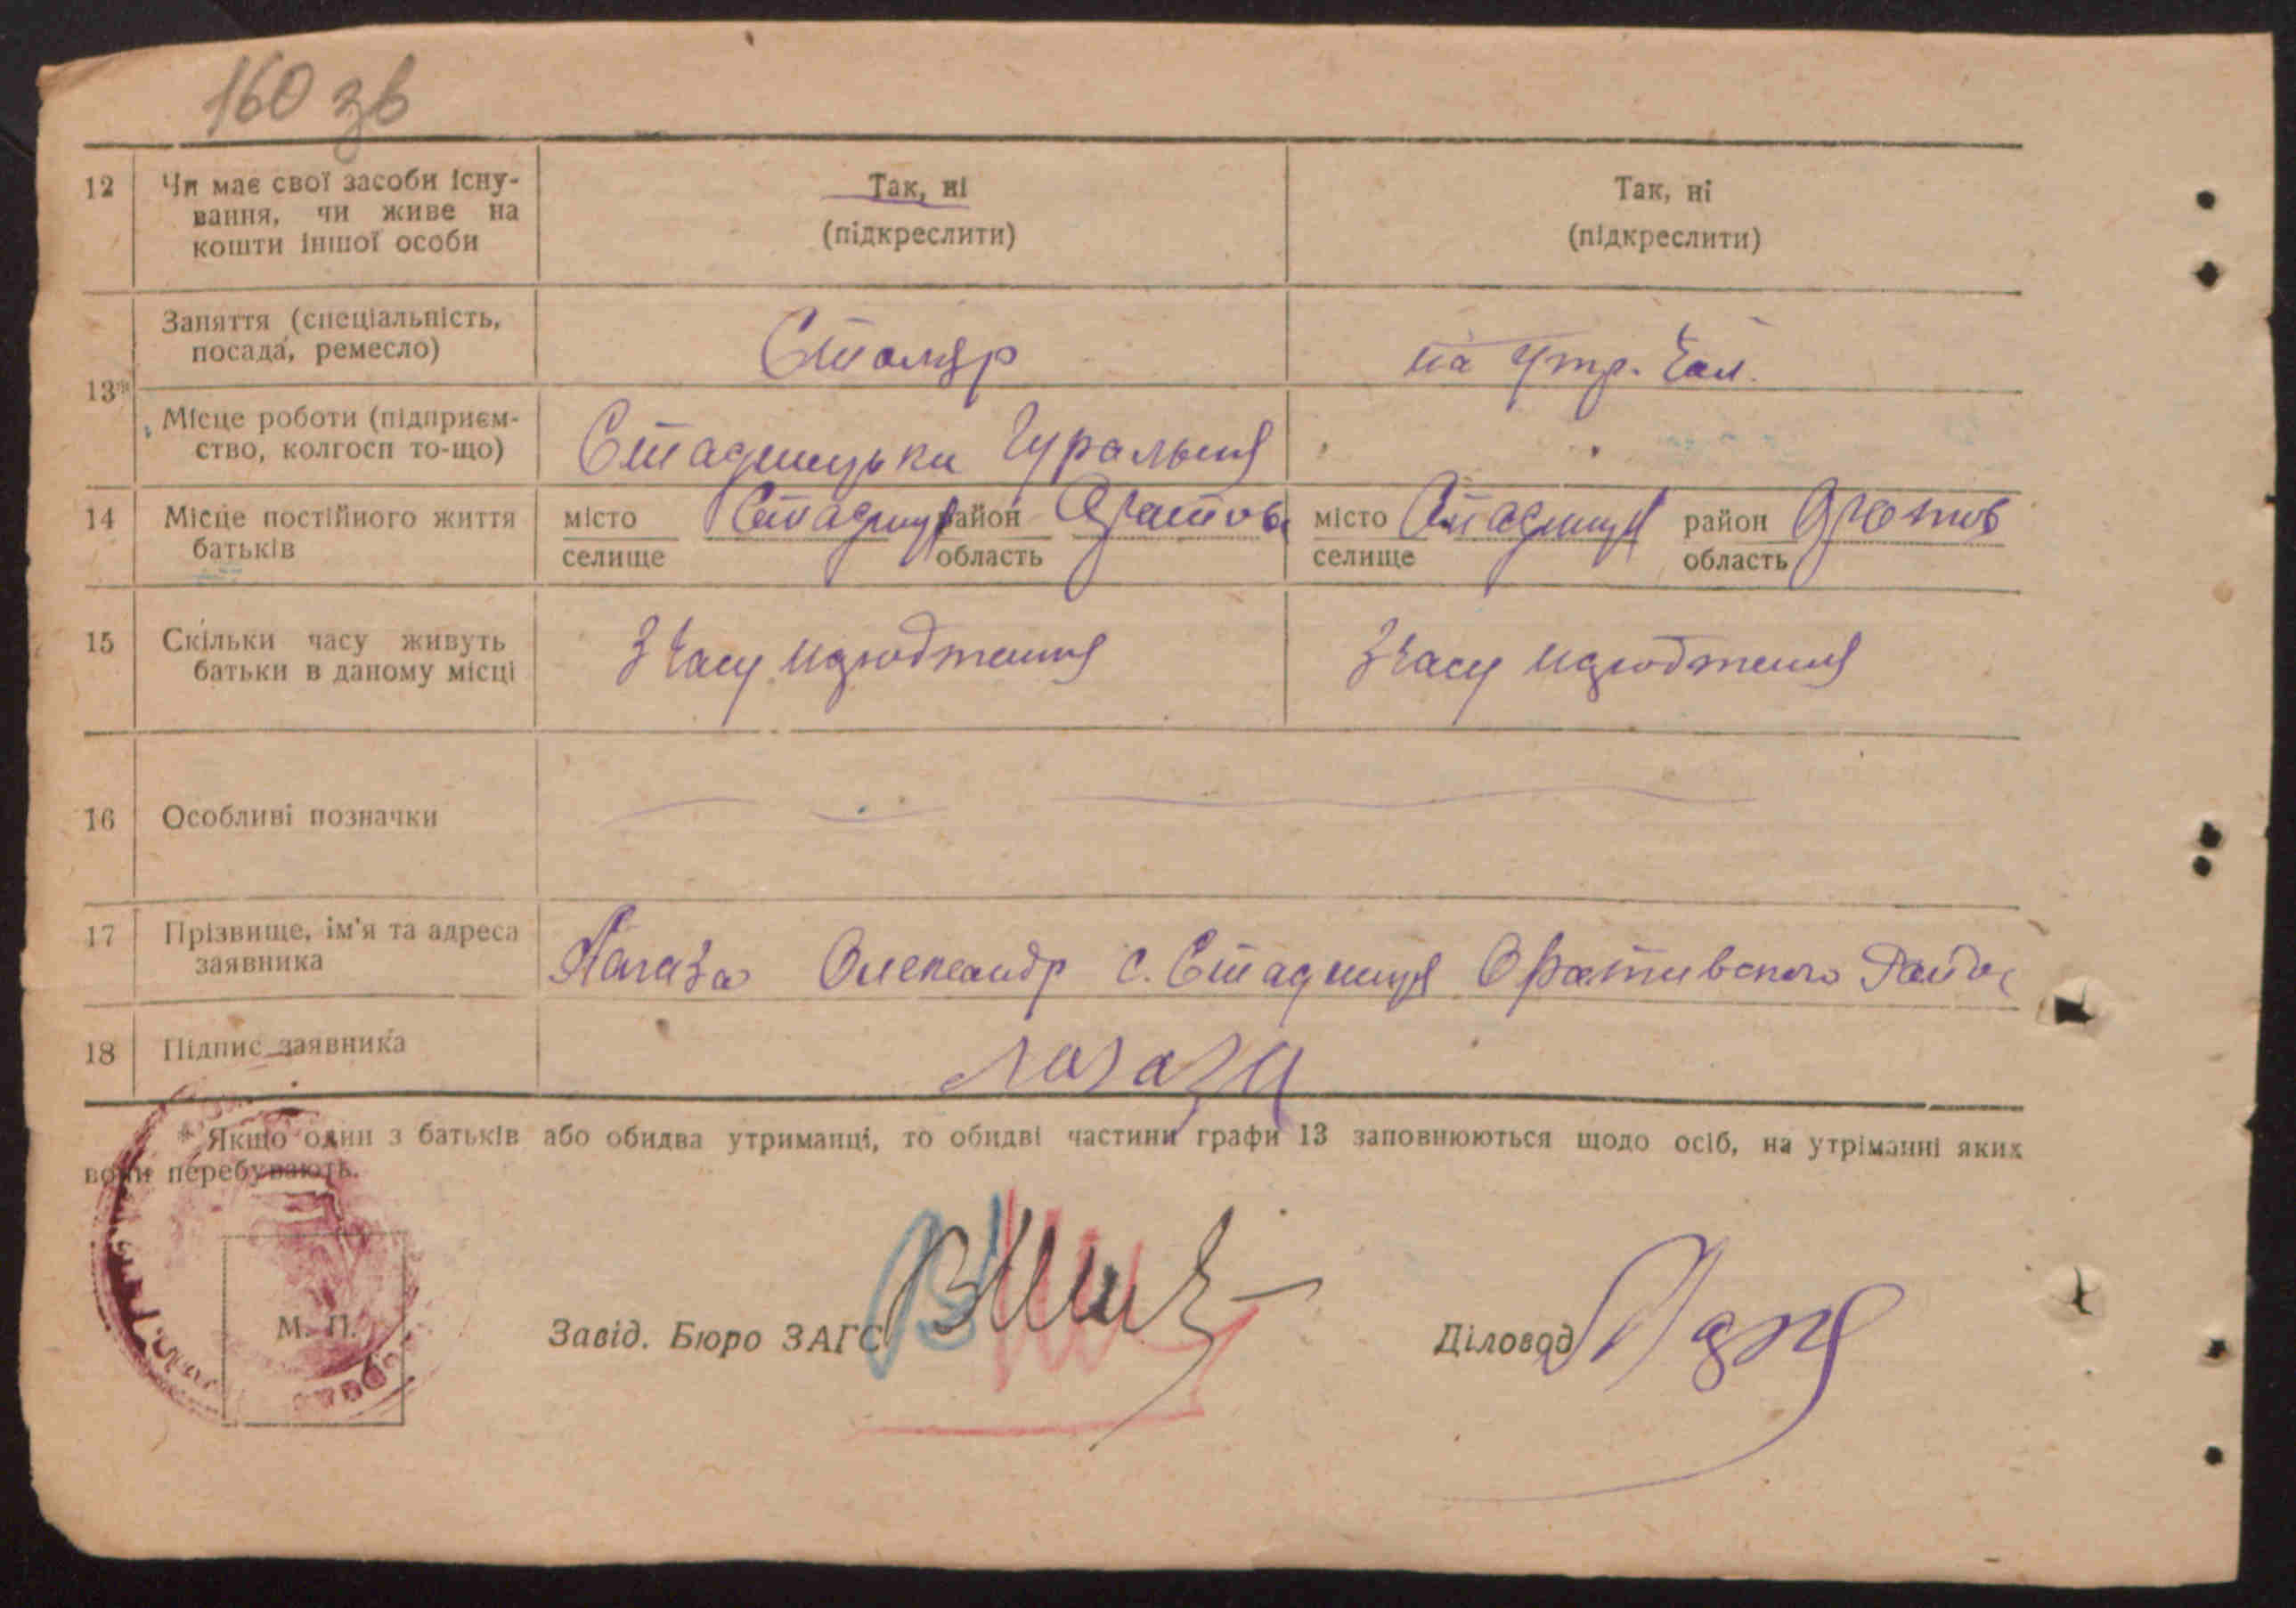 160 зв
12 Чи має свої засоби існу- Так, ні Так, ні
вання, чи живе на (підкреслити) (підкреслити)
кошти іншої особи
13* Заняття (спеціальність, Столяр на утр. чол.
посада, ремесло)
Місце роботи (підприєм- Стадницька Гуральня
ство, колгосп то-що)
14 Місце постійного життя місто Стадниця район Оратов місто Стадниця район Оратов
батьків селище область селище область
15 Скільки часу живуть З часу народження З часу народження
батьки в даному місці
16 Особливі позначки
17 Прізвище, ім'я та адреса Лагаза Олександр с. Стадниця Оративского Район
заявника
18 Підпис заявника Лагаза
* Якщо один з батьків або обидва утриманці, то обидві частини графи 13 заповнюються щодо осіб, на утріманні яких
вони перебувають.
М. П. Завід. Бюро ЗАГС Діловод